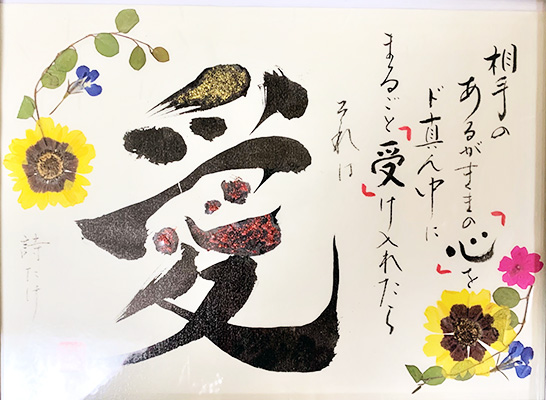 相手の
あるがままの「心」を
ド真ん中に
まるごと「受」け入れたら
それは
愛
詩たけ